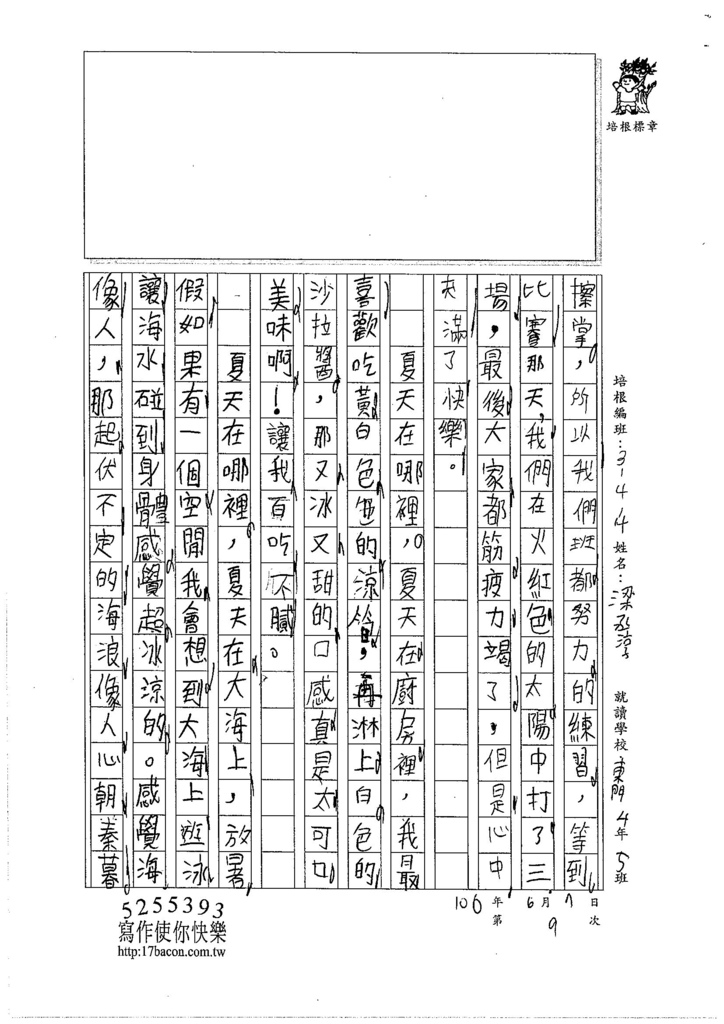 培根標章
培根編班：3-4 4 姓名：梁 就讀學校 東門 4年5班
106年6月7日
第9次
擦掌，所以我們班都努力的練習，等到
比賽那天，我們在火紅色的太陽中打了三
場，最後大家都筋疲力竭了，但是心中
充滿了快樂。
夏天在哪裡，夏天在廚房裡，我最
喜歡吃黃白色的涼，再淋上白色的
沙拉醬，那又冰又甜的口感真是太可口
美味啊！讓我百吃不膩。
夏天在哪裡，夏天在大海上，放暑
假如果有一個空閒我會想到大海上游泳
讓海水碰到身體感覺超冰涼的。感覺海
像人，那起伏不定的海浪像人心朝秦暮
5255393
寫作使你快樂
http:17bacon.com.tw